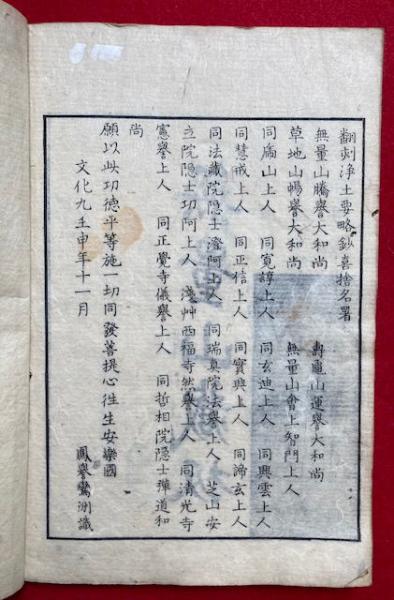 翻刻淨土要略鈔喜捨名署
無量山騰譽大和尚　壽龜山運譽大和尚
草地山暢譽大和尚　無量山會上智門上人
同盾山上人　同寬諄上人　同玄迪上人　同興雲上人
同慧戒上人　同正信上人　同寶典上人　同諦玄上人
同法藏院隱士濟阿上人　同瑞真院法譽上人　芝山安
立院隱士功阿上人　淺艸西福寺然譽上人　同清光寺
憲譽上人　同正覺寺儀譽上人　同哲相院隱士禪道和
尚
願以此功德平等施一切同發菩提心往生安樂國
文化九壬申年十一月　鳳譽鸞洲識